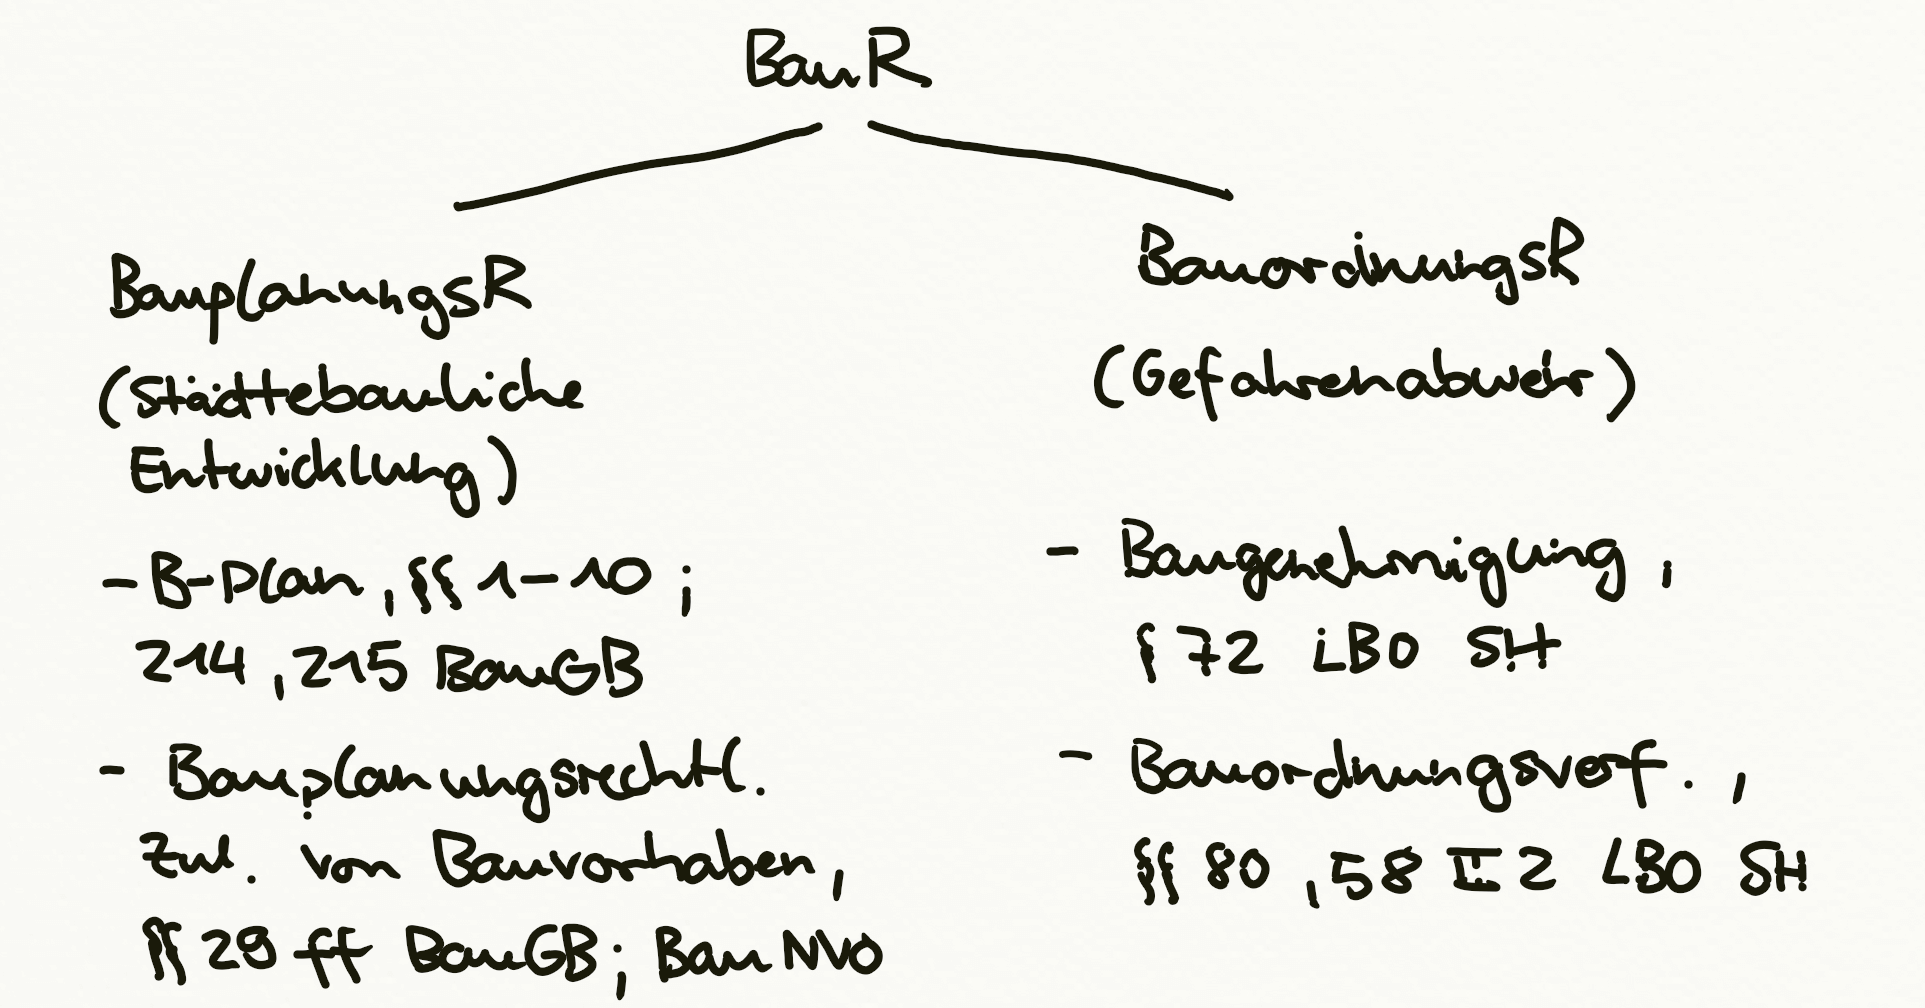 BauR
BauplanungsR
(Städtebauliche
Entwicklung)
- B-Plan, §§ 1-10;
214, 215 BauGB
- Bauplanungsrechtl.
Zul. von Bauvorhaben,
§§ 29 ff BauGB; BauNVO
BauordnungsR
(Gefahrenabwehr)
- Baugenehmigung,
§ 72 LBO SH
- Bauordnungsverf.,
§§ 80, 58 II 2 LBO SH